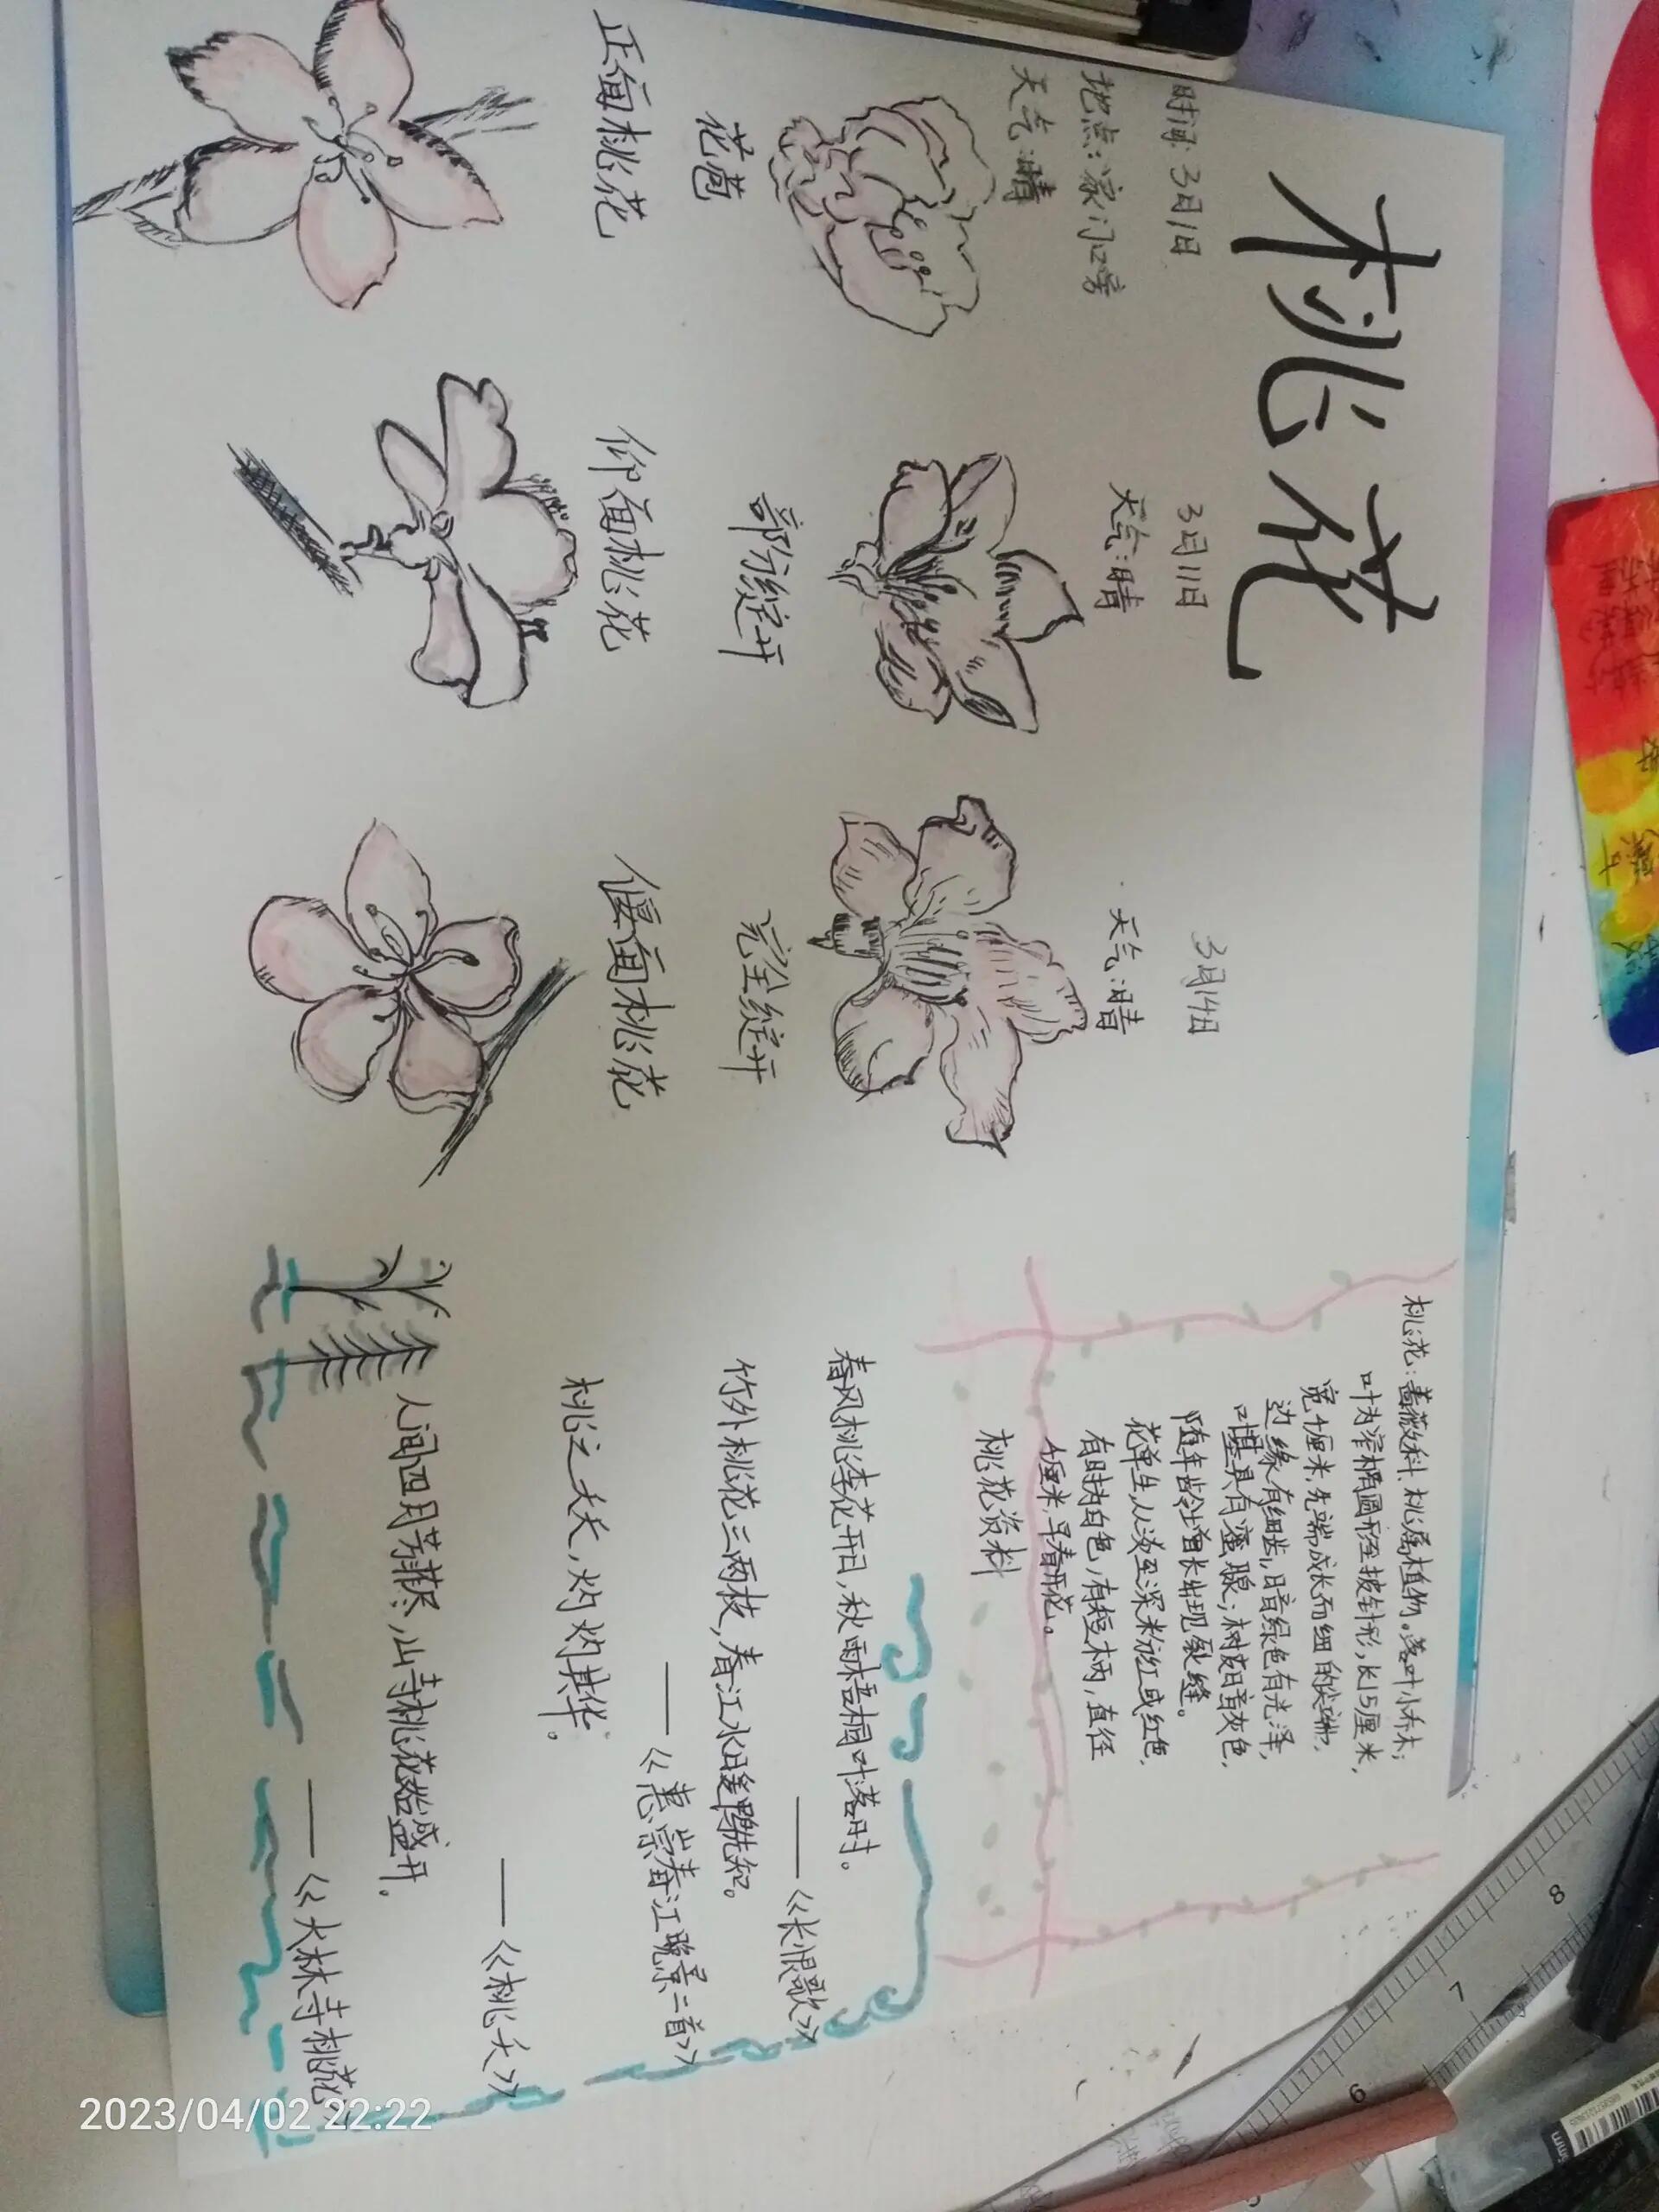 桃花
时间:3月1日
地点:家门口旁
天气:晴
花苞
3月11日
天气:晴
部分绽开
3月14日
天气:晴
完全绽开
正面桃花
仰面桃花
偃面桃花
桃花:蔷薇科、桃属植物。落叶小乔木;
叶为窄椭圆形至披针形,长15厘米,
宽4厘米,先端成长而细的尖端,
边缘有细齿,暗绿色有光泽,
叶基具有蜜腺;树皮暗灰色,
随年龄增长出现裂缝。
花单生,从淡至深粉红或红色,
有时为白色,有短柄,直径
4厘米,早春开花。
桃花资料
春风桃李花开日,秋雨梧桐叶落时。
——《长恨歌》
竹外桃花三两枝,春江水暖鸭先知。
——《惠崇春江晚景二首》
桃之夭夭,灼灼其华。
——《桃夭》
人间四月芳菲尽,山寺桃花始盛开。
——《大林寺桃花》
8
7
6
2023/04/02 22:22